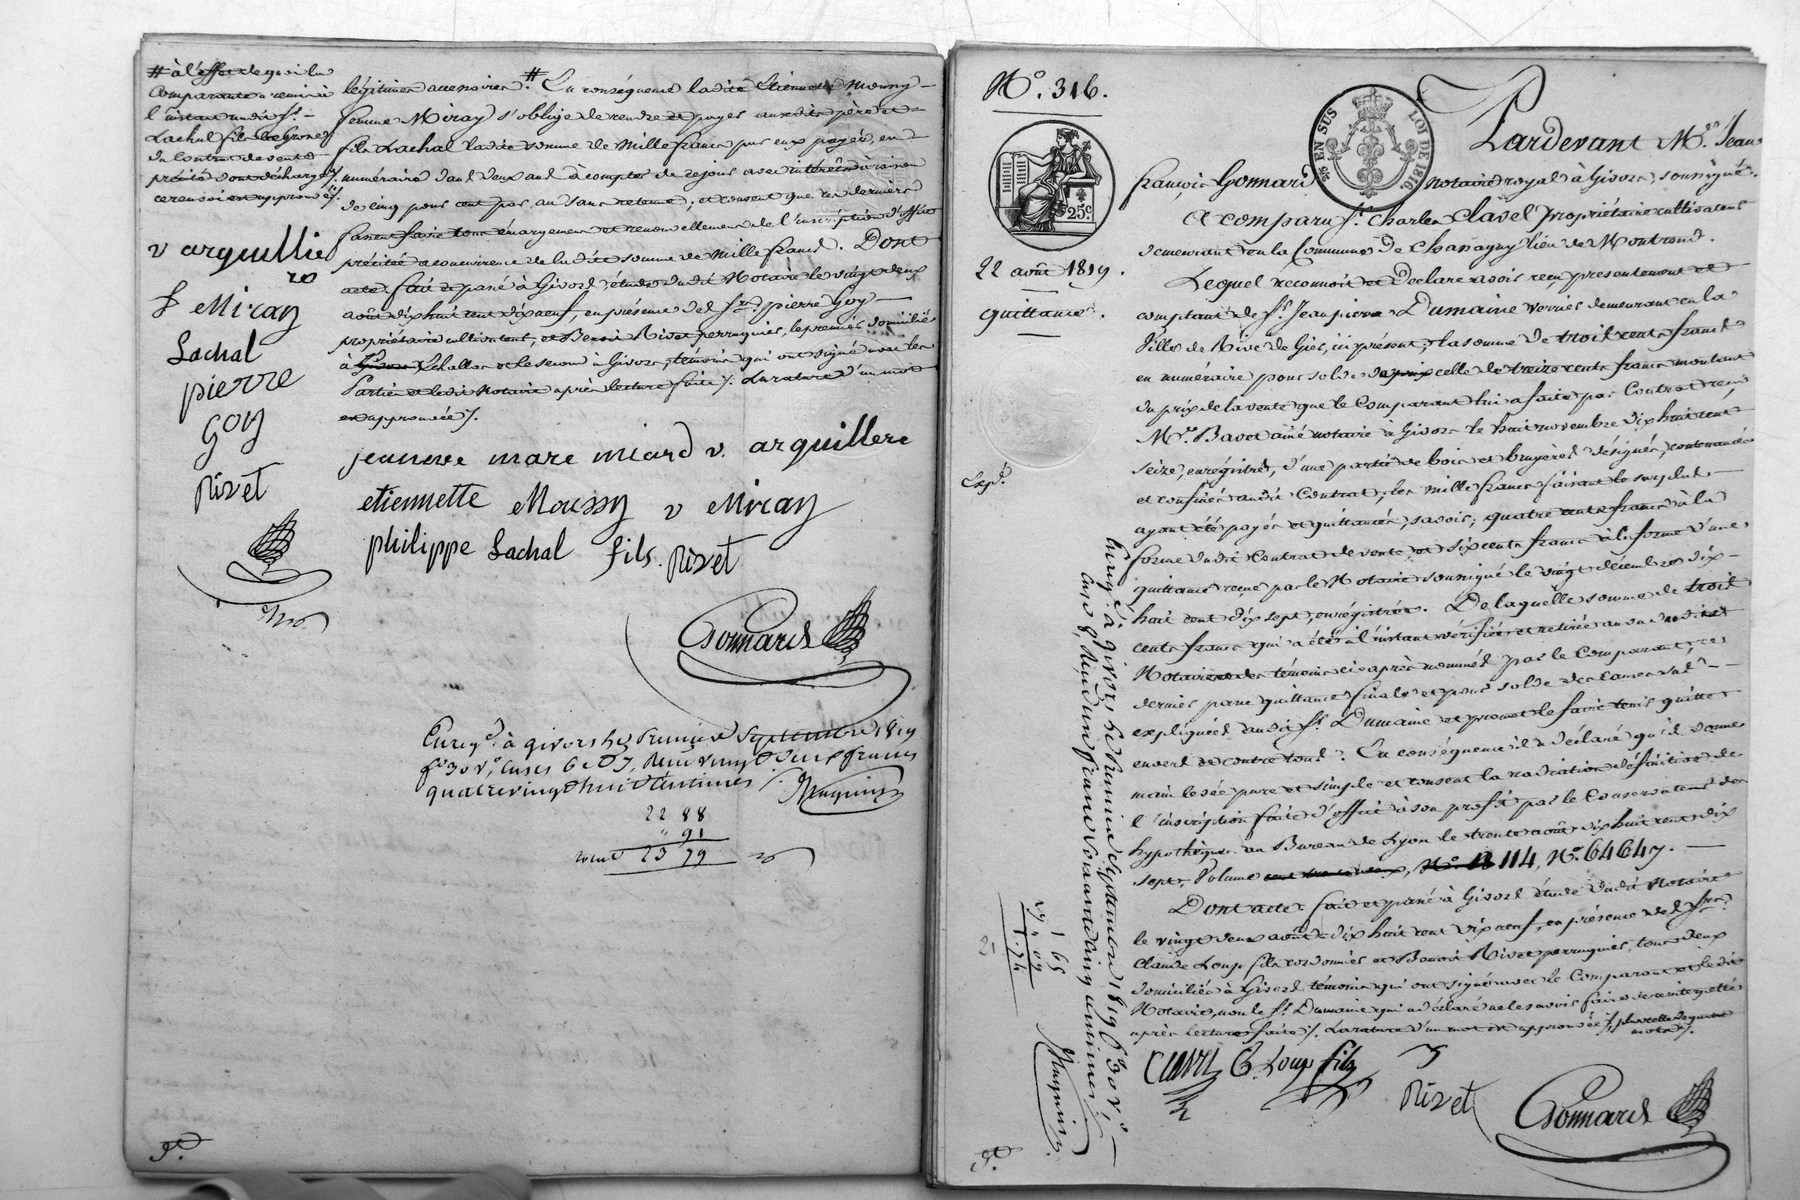 # à l'effet de quoi la
Comparante a remis à
l'instant audit Sr.
Lachal fils la Grosse
du Contrat de vente
précité dont décharge ./.
ce renvoi est approuvé ./.
v arguillie
re
f Miray
Lachal
pierre
Goy
Rivet
légitimes accessoires. # En conséquence ladite Etiennette Moussy
femme Miray s'oblige de rendre et payer auxdits père et
fils Lachal ladite somme de Mille francs par eux payée, en
numéraire dans deux ans à compter de ce jour avec intérêts à raison
de cinq pour cent par an sans retenue; et consent que ces derniers
fassent faire tous émargement et renouvellement de l'inscription d'office
précitée à concurrence de ladite somme de Mille francs. Dont
acte. fait et passé à Givors étude dudit Notaire le vingt deux
août dix huit cent dix neuf, en présence des Srs. pierre Goy
propriétaire cultivateur, et Benoit Rivet perruquier, le premier domicilié
à Givors Echallas et le second à Givors, témoins qui ont signé avec les
Parties et ledit Notaire après lecture faite ./. La rature d'un mot
est approuvée ./.
jeanne marc miard v. arguillere
etiennette Moussy v Miray
philippe Lachal fils. Rivet
Gonnard
Enregé. à givors le Premier Septembre 1819
fo. 30 vo, Cases 6 et 7, Reçu vingt Deux francs
quatre vingt huit Centimes
22 88
" 91
23 79
No. 316.
22 août 1819.
quittance.
Expé.
25c
SUS
LOI DE 1816
Pardevant Me. Jean
françois Gonnard notaire royal à Givors, soussigné.
A comparu Sr. Charles Clavel propriétaire cultivateur
demeurant en la Commune de Chassagny lieu de Montrond.
Lequel reconnoit et Déclare avoir reçu présentement et
comptant de Sr. Jean pierre Dumaine verrier demeurant en la
Ville de Rive de Gier, ici présent, la somme de trois cents francs
en numéraire pour solde de celle de treize cents francs montant
du prix de la vente que le Comparant lui a faite par Contrat reçu
Me. Bavet ainé notaire à Givors le huit novembre dix huit cent
seize, enregistré, d'une partie de bois et bruyères désignés, contenance
et confinés audit Contrat; les mille francs faisant le surplus
ayant été payés et quittancés, savoir; quatre cents francs à la
forme dudit Contrat de vente et six cents francs à la forme d'une
quittance reçue par le Notaire soussigné le vingt décembre dix
huit cent dix sept, enregistrée. De laquelle somme de trois
cents francs qui a été à l'instant vérifiée et retirée au vu dudit
Notaire et des témoins ci après nommés par le Comparant, ce
dernier passe quittance finale et pour solde
expliquée audit Sr. Dumaine et promet le faire tenir quitte
envers et contre tous. En conséquence il a déclaré qu'il donne
main levée pure et simple et consent la radiation définitive de
l'inscription faite d'office à son profit par le Conservateur des
hypothèques au Bureau de Lyon le trente août dix huit cent dix
sept, Volume 114, No. 64647.
Dont acte. fait et passé à Givors étude dudit Notaire
le vingt deux août dix huit cent dix neuf, en présence des Srs.
Claude Loup fils cordonnier et Benoit Rivet perruquier, tous deux
domiciliés à Givors témoins qui ont signé avec le Comparant et ledit
Notaire, non le Sr. Dumaine qui a déclaré ne le savoir faire de ce interpellé
après lecture faite ./. La rature d'un mot est approuvée ./. plus celle de quatre
mots ./.
Clavel C. Loup fils
Rivet
Gonnard
Enregé. à givors le Premier Septembre 1819 fo 30 vo.
Case 8, Reçu un franc Soixante Cinq Centimes
1 65